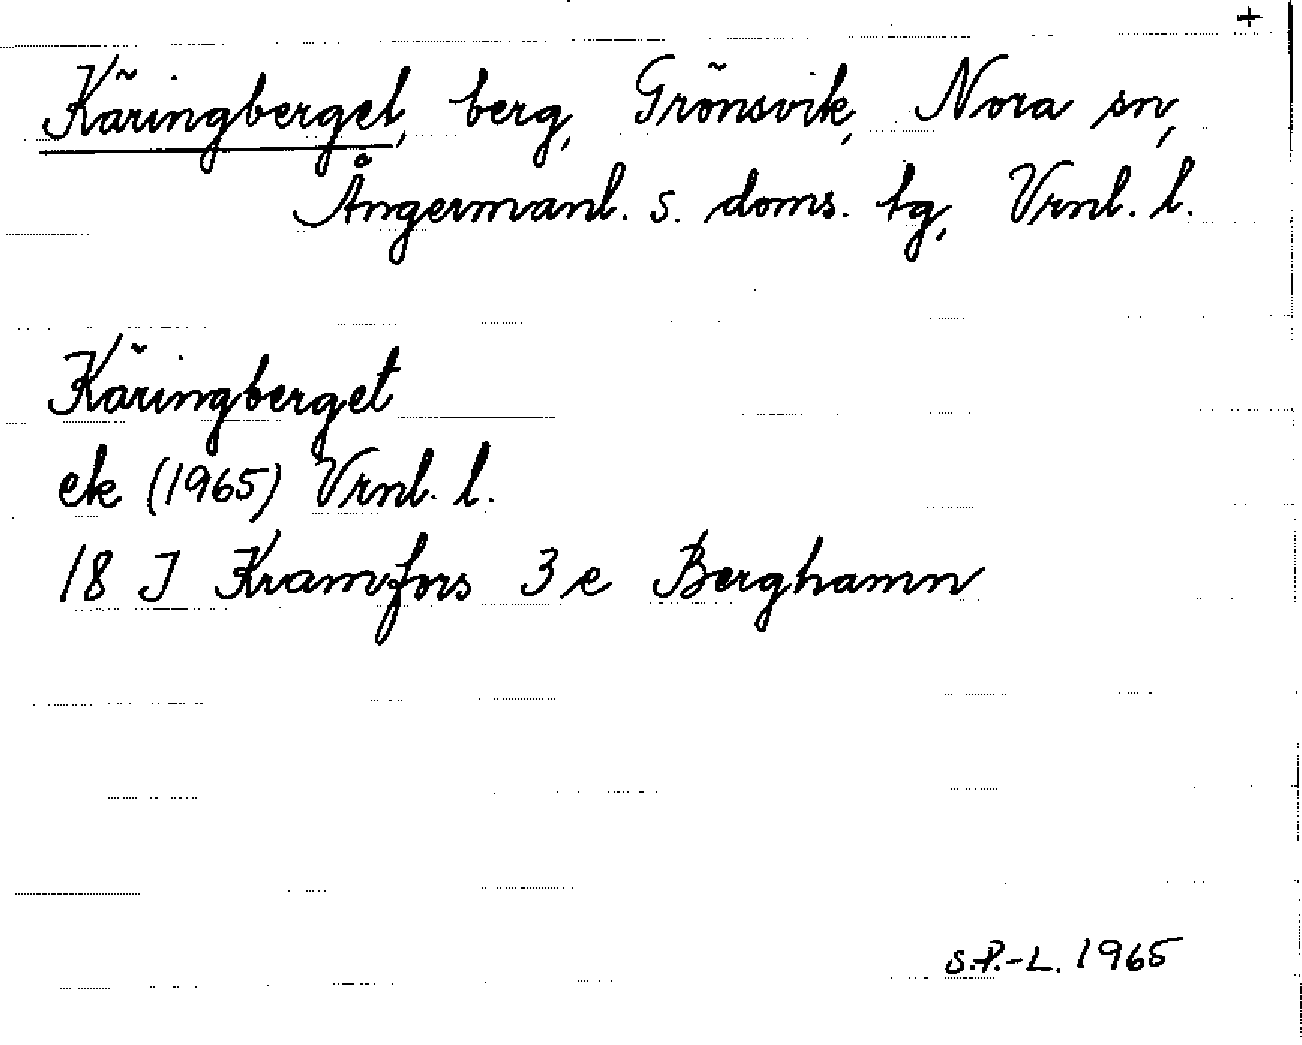 +
Käringberget, berg, Grönsvik, Nora sn,
Ångermanl. s. doms. tg, Vrnl. l.
Käringberget
ek (1965) Vrnl. l.
18 J Kramfors 3 e Berghamn
S.P.-L. 1965